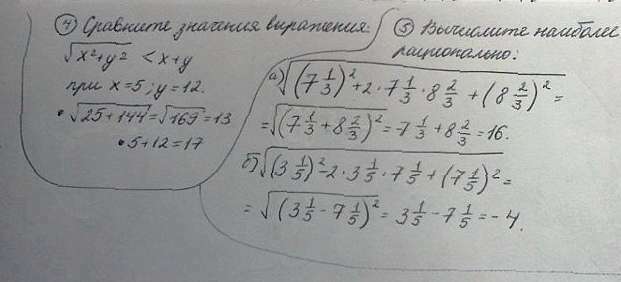 ④ Сравните значения выражения:
√(x²+y²) < x+y
при x=5; y=12.
• √(25+144) = √169 = 13
• 5+12=17
⑤ Вычислите наиболее
рационально:
а) √((7 1/3)² + 2 · 7 1/3 · 8 2/3 + (8 2/3)²) =
= √((7 1/3 + 8 2/3)²) = 7 1/3 + 8 2/3 = 16.
б) √((3 1/5)² - 2 · 3 1/5 · 7 1/5 + (7 1/5)²) =
= √((3 1/5 - 7 1/5)²) = 3 1/5 - 7 1/5 = -4.